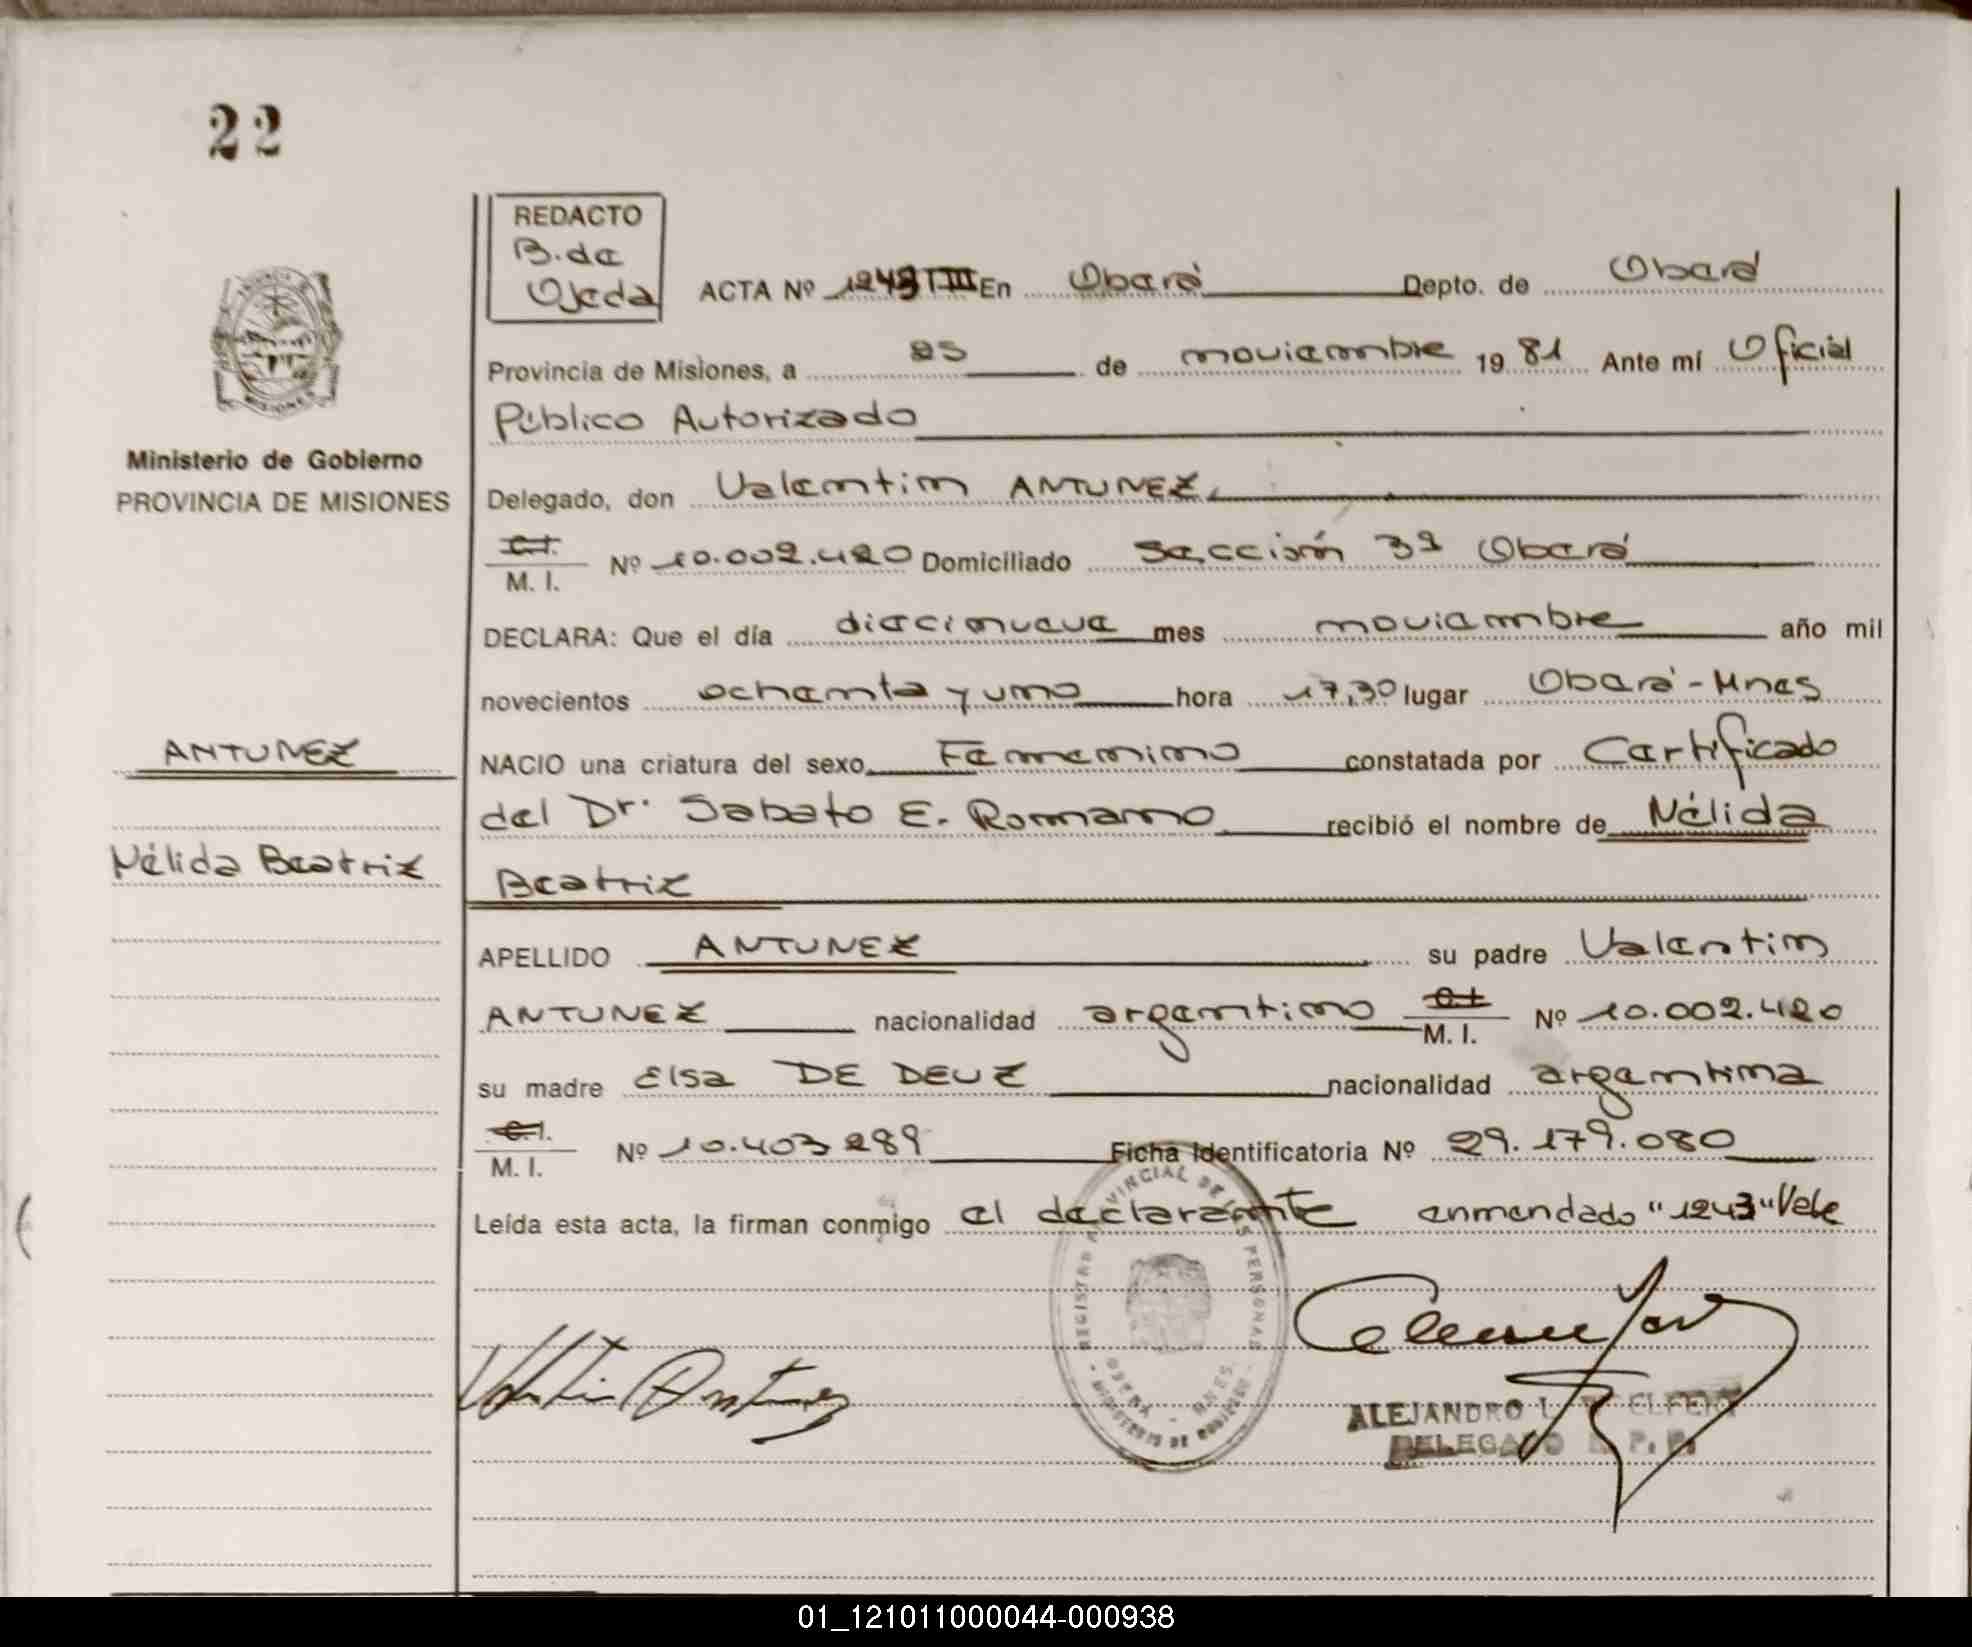 22
REDACTO
B. de
Ojeda
ACTA Nº 1243 T-III En Oberá Depto. de Oberá
Provincia de Misiones, a 25 de noviembre 19 81 Ante mí Oficial
Público Autorizado
Ministerio de Gobierno
PROVINCIA DE MISIONES
Delegado, don Valentin ANTUNEZ,
C.I.
M. I. Nº 10.002.420 Domiciliado Sección 3ª Oberá
DECLARA: Que el día diecinueve mes noviembre año mil
novecientos ochenta y uno hora 17,30 lugar Oberá - Mnes
ANTUNEZ
NACIO una criatura del sexo Femenino constatada por Certificado
del Dr. Sabato E. Romano recibió el nombre de Nélida
Nélida Beatriz
Beatriz
APELLIDO ANTUNEZ su padre Valentin
ANTUNEZ nacionalidad argentino C.I. M. I. Nº 10.002.420
su madre Elsa DE DEUZ nacionalidad argentina
C.I.
M. I. Nº 10.403 289 Ficha Identificatoria Nº 29.179.080
Leída esta acta, la firman conmigo el declarante enmendado "1243" Vale
REGISTRO PROVINCIAL DE LAS PERSONAS
OBERA - MNES.
MINISTERIO DE GOBIERNO
Valentin Antunez
ALEJANDRO
DELEGADO R. P. P.
01_121011000044-000938